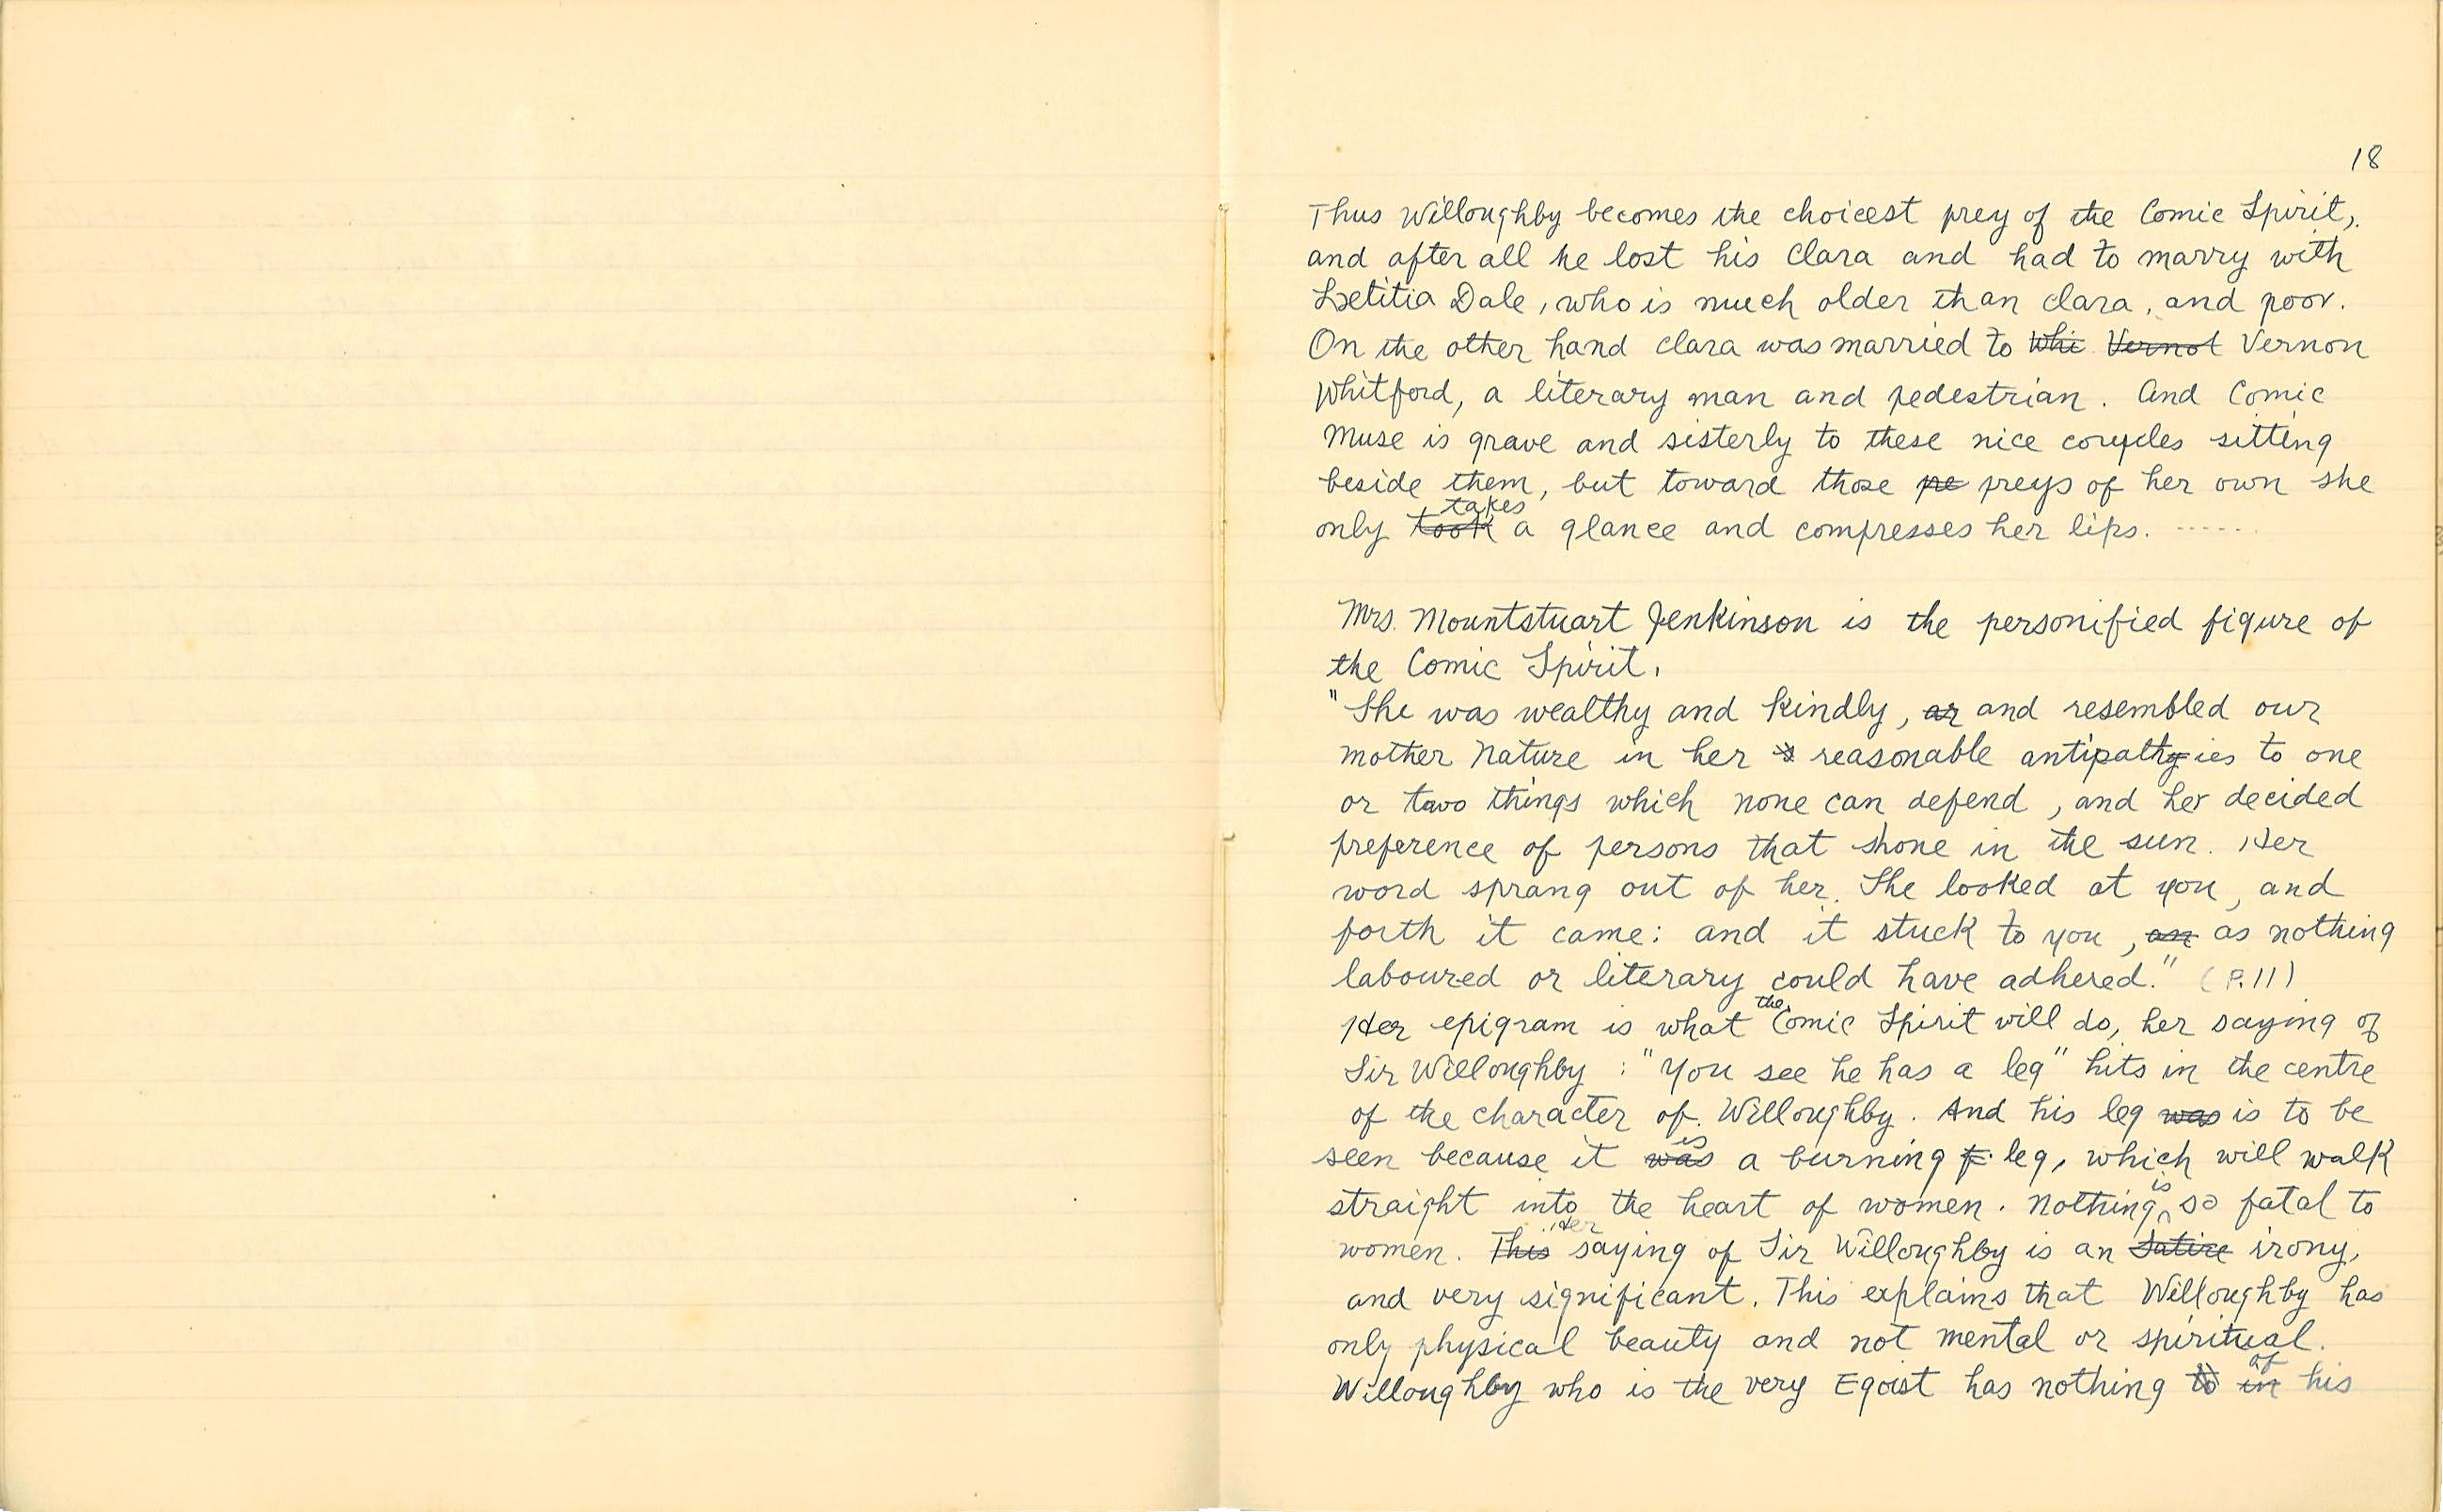 18
Thus Willoughby becomes the choicest prey of the Comic Spirit,
and after all he lost his Clara and had to marry with
Lætitia Dale, who is much older than Clara, and poor.
On the other hand Clara was married to Whi Vernot Vernon
Whitford, a literary man and pedestrian. And Comic
Muse is grave and sisterly to these nice couples sitting
beside them, but toward those pre preys of her own she
only took takes a glance and compresses her lips. ......
Mrs. Mountstuart Jenkinson is the personified figure of
the Comic Spirit.
"She was wealthy and kindly, ar and resembled our
mother Nature in her reasonable antipathies to one
or two things which none can defend, and her decided
preference of persons that shone in the sun. Her
word sprang out of her. She looked at you, and
forth it came: and it stuck to you, an as nothing
laboured or literary could have adhered." (P.11)
Her epigram is what the Comic Spirit will do, her saying of
Sir Willoughby : "You see he has a leg" hits in the centre
of the character of Willoughby. And his leg was is to be
seen because it was is a burning leg, which will walk
straight into the heart of women. Nothing is so fatal to
women. This Her saying of Sir Willoughby is an Satire irony,
and very significant. This explains that Willoughby has
only physical beauty and not mental or spiritual.
Willoughby who is the very Egoist has nothing to in of his